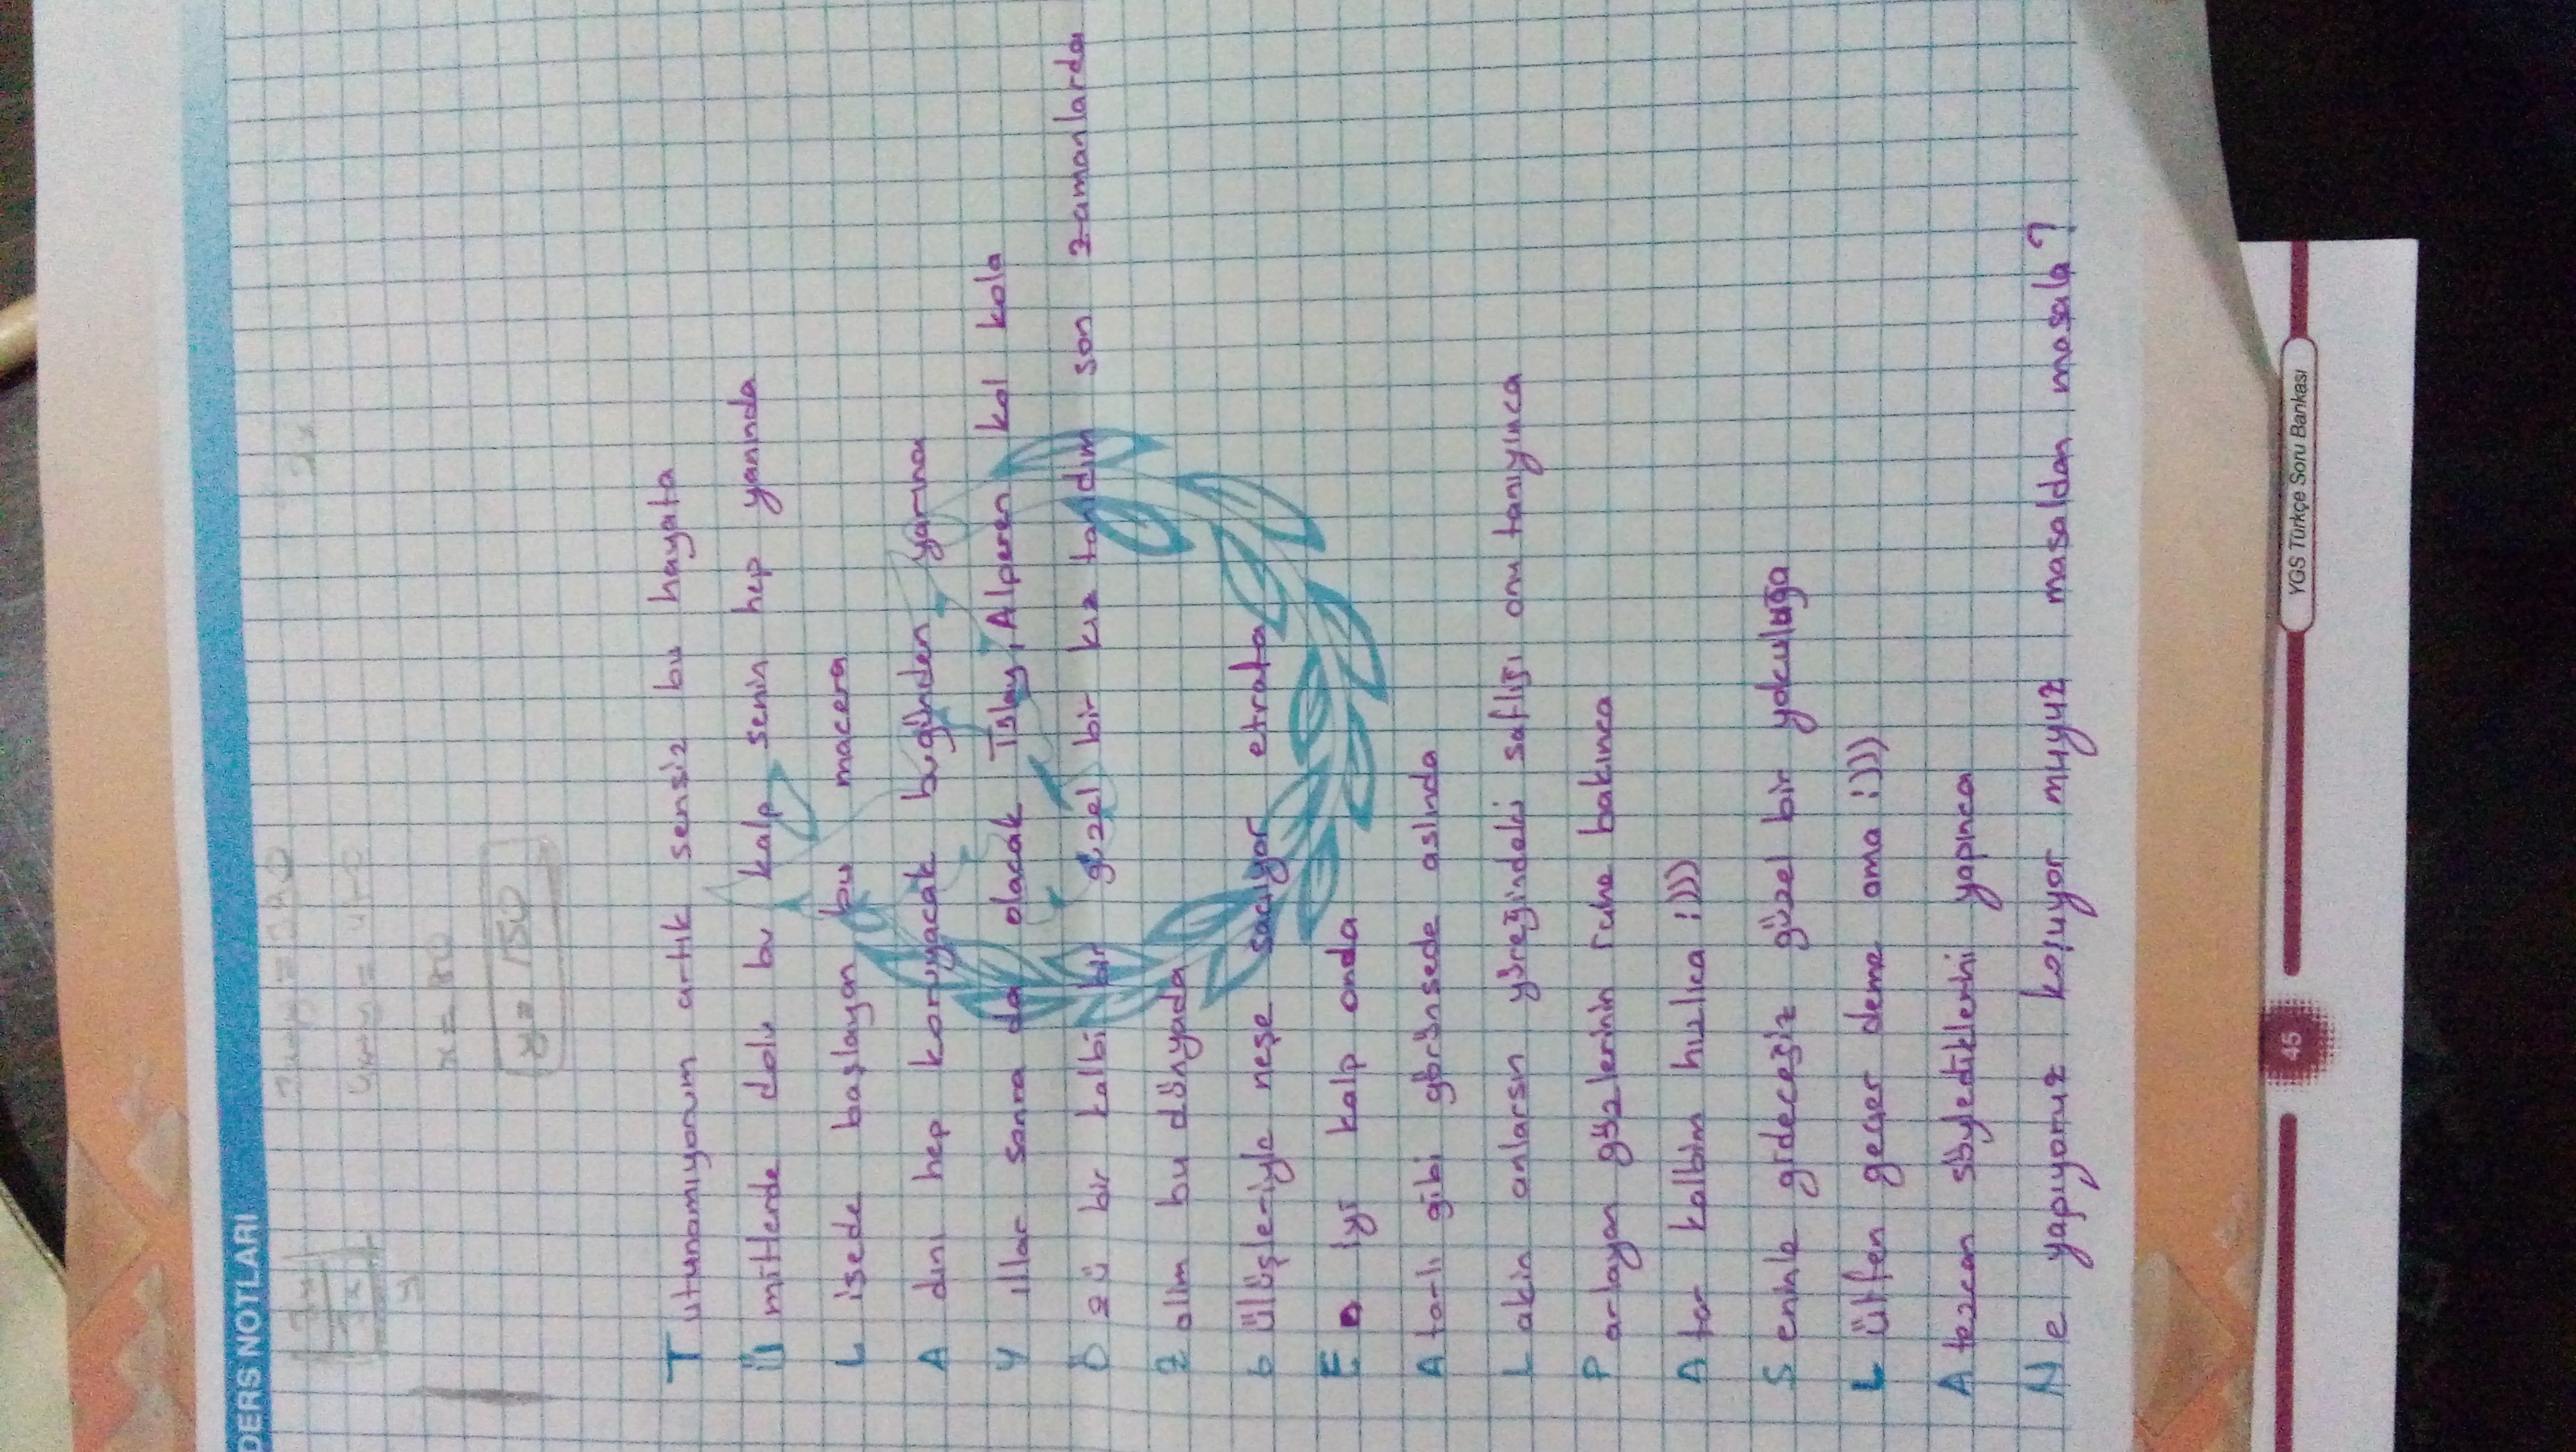 DERS NOTLARI
x = 80
y = 150
Tutunamıyorum artık sensiz bu hayata
Ümitlerde dolu bu kalp senin hep yanında
Lisede başlayan bu macera
Adını hep koruyacak bugünden yarına
Yıllar sonra da olacak Tülay, Alperen kol kola
Özü bir kalbi bir güzel bir kız tanıdım son zamanlarda
Zalim bu dünyada
Gülüşleriyle neşe saçıyor etrafa
En iyi kalp onda
Atarlı gibi görünsede aslında
Lakin anlarsın yüreğindeki saflığı onu tanıyınca
Parlayan gözlerinin ruha bakınca
Atar kalbim hızlıca :)))
Seninle gideceğiz güzel bir yolculuğa
Lütfen geçer deme ama :)))
Atezcan söylediklerini yapınca
Ne yapıyoruz koşuyor muyuz masaldan masala?
45
YGS Türkçe Soru Bankası